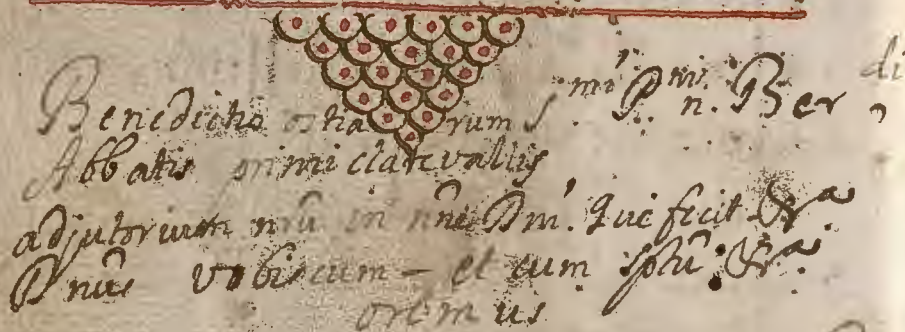 Benedictio ostiarum S mi P ni. n. Ber
Abbatis primi clarevallis
adjutorium nrũ in nñe Dmi. Qui fecit &ra
Dnũs vobiscum – et cum spũ: &ra
oremus